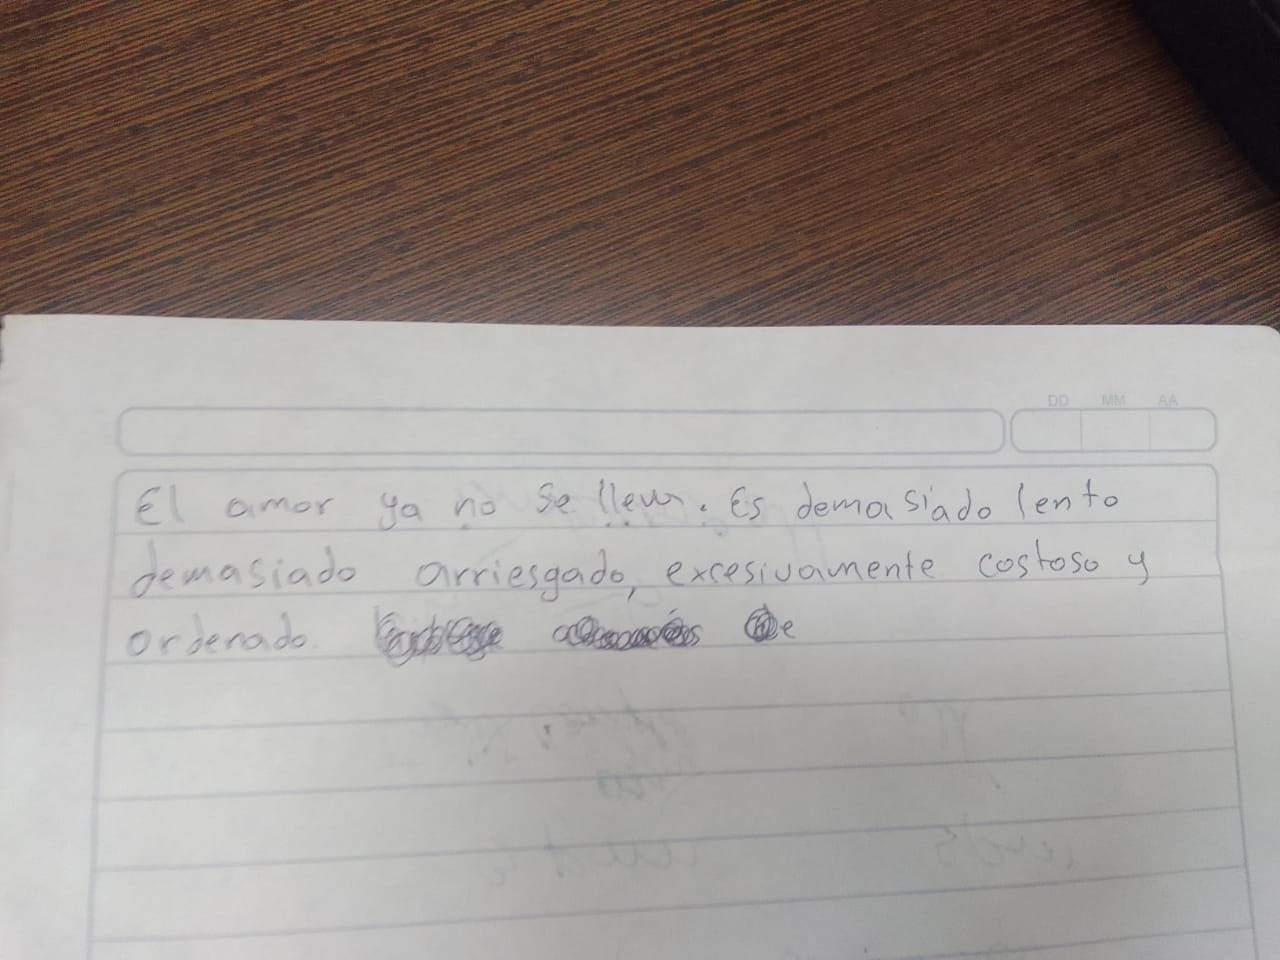 DD MM AA
El amor ya no se lleva. Es demasiado lento
demasiado arriesgado, excesivamente costoso y
ordenado.